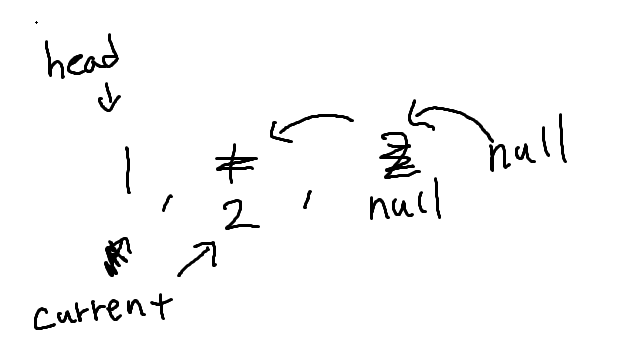 head
1, ~~1~~ ~~2~~ null
2, null
current